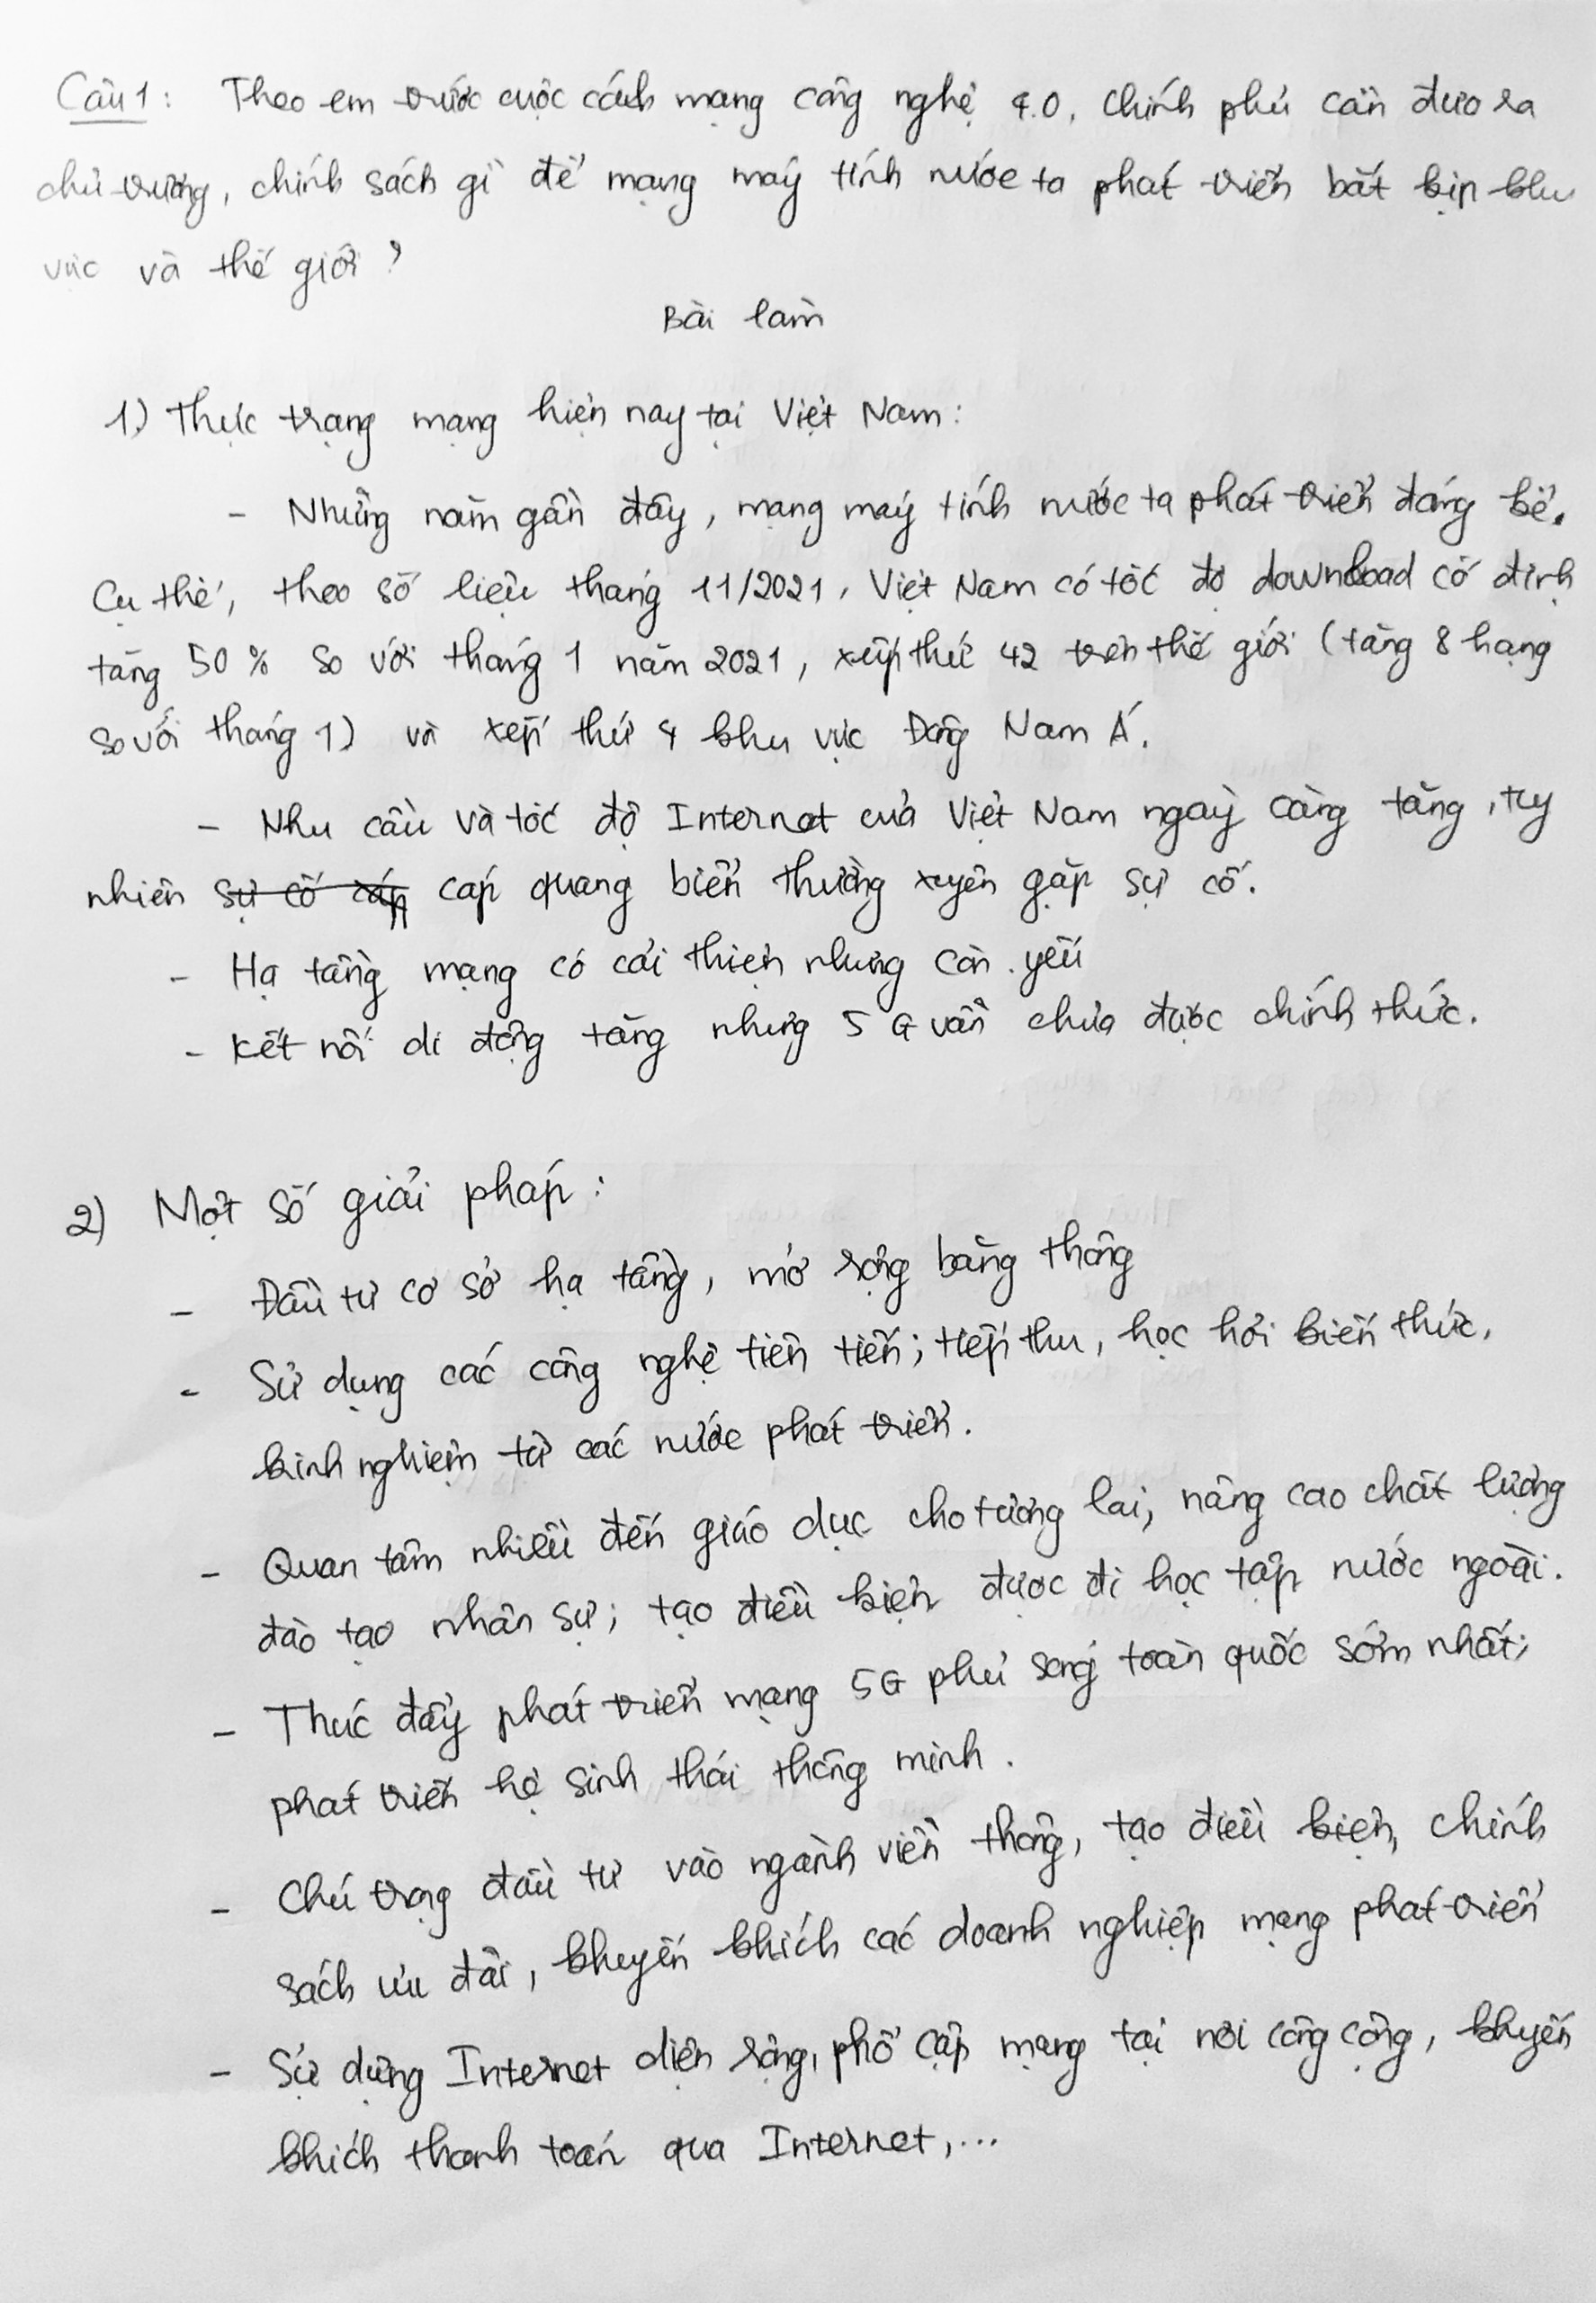 Câu 1: Theo em trước cuộc cách mạng công nghệ 4.0, Chính phủ cần đưa ra
chủ trương, chính sách gì để mạng máy tính nước ta phát triển bắt kịp khu
vực và thế giới?
Bài làm
1) Thực trạng mạng hiện nay tại Việt Nam:
- Những năm gần đây, mạng máy tính nước ta phát triển đáng kể.
Cụ thể, theo số liệu tháng 11/2021, Việt Nam có tốc độ download cố định
tăng 50% so với tháng 1 năm 2021, xếp thứ 42 trên thế giới (tăng 8 hạng
so với tháng 1) và xếp thứ 4 khu vực Đông Nam Á.
- Nhu cầu và tốc độ Internet của Việt Nam ngày càng tăng, tuy
nhiên sự cố cáp cáp quang biển thường xuyên gặp sự cố.
- Hạ tầng mạng có cải thiện nhưng còn yếu
- Kết nối di động tăng nhưng 5G vẫn chưa được chính thức.
2) Một số giải pháp:
- Đầu tư cơ sở hạ tầng, mở rộng băng thông
- Sử dụng các công nghệ tiên tiến; tiếp thu, học hỏi kiến thức,
kinh nghiệm từ các nước phát triển.
- Quan tâm nhiều đến giáo dục cho tương lai, nâng cao chất lượng
đào tạo nhân sự; tạo điều kiện được đi học tập nước ngoài.
- Thúc đẩy phát triển mạng 5G phủ sóng toàn quốc sớm nhất;
phát triển hệ sinh thái thông minh.
- Chú trọng đầu tư vào ngành viễn thông, tạo điều kiện, chính
sách ưu đãi, khuyến khích các doanh nghiệp mạng phát triển
- Sử dụng Internet diện rộng, phổ cập mạng tại nơi công cộng, khuyến
khích thanh toán qua Internet,...